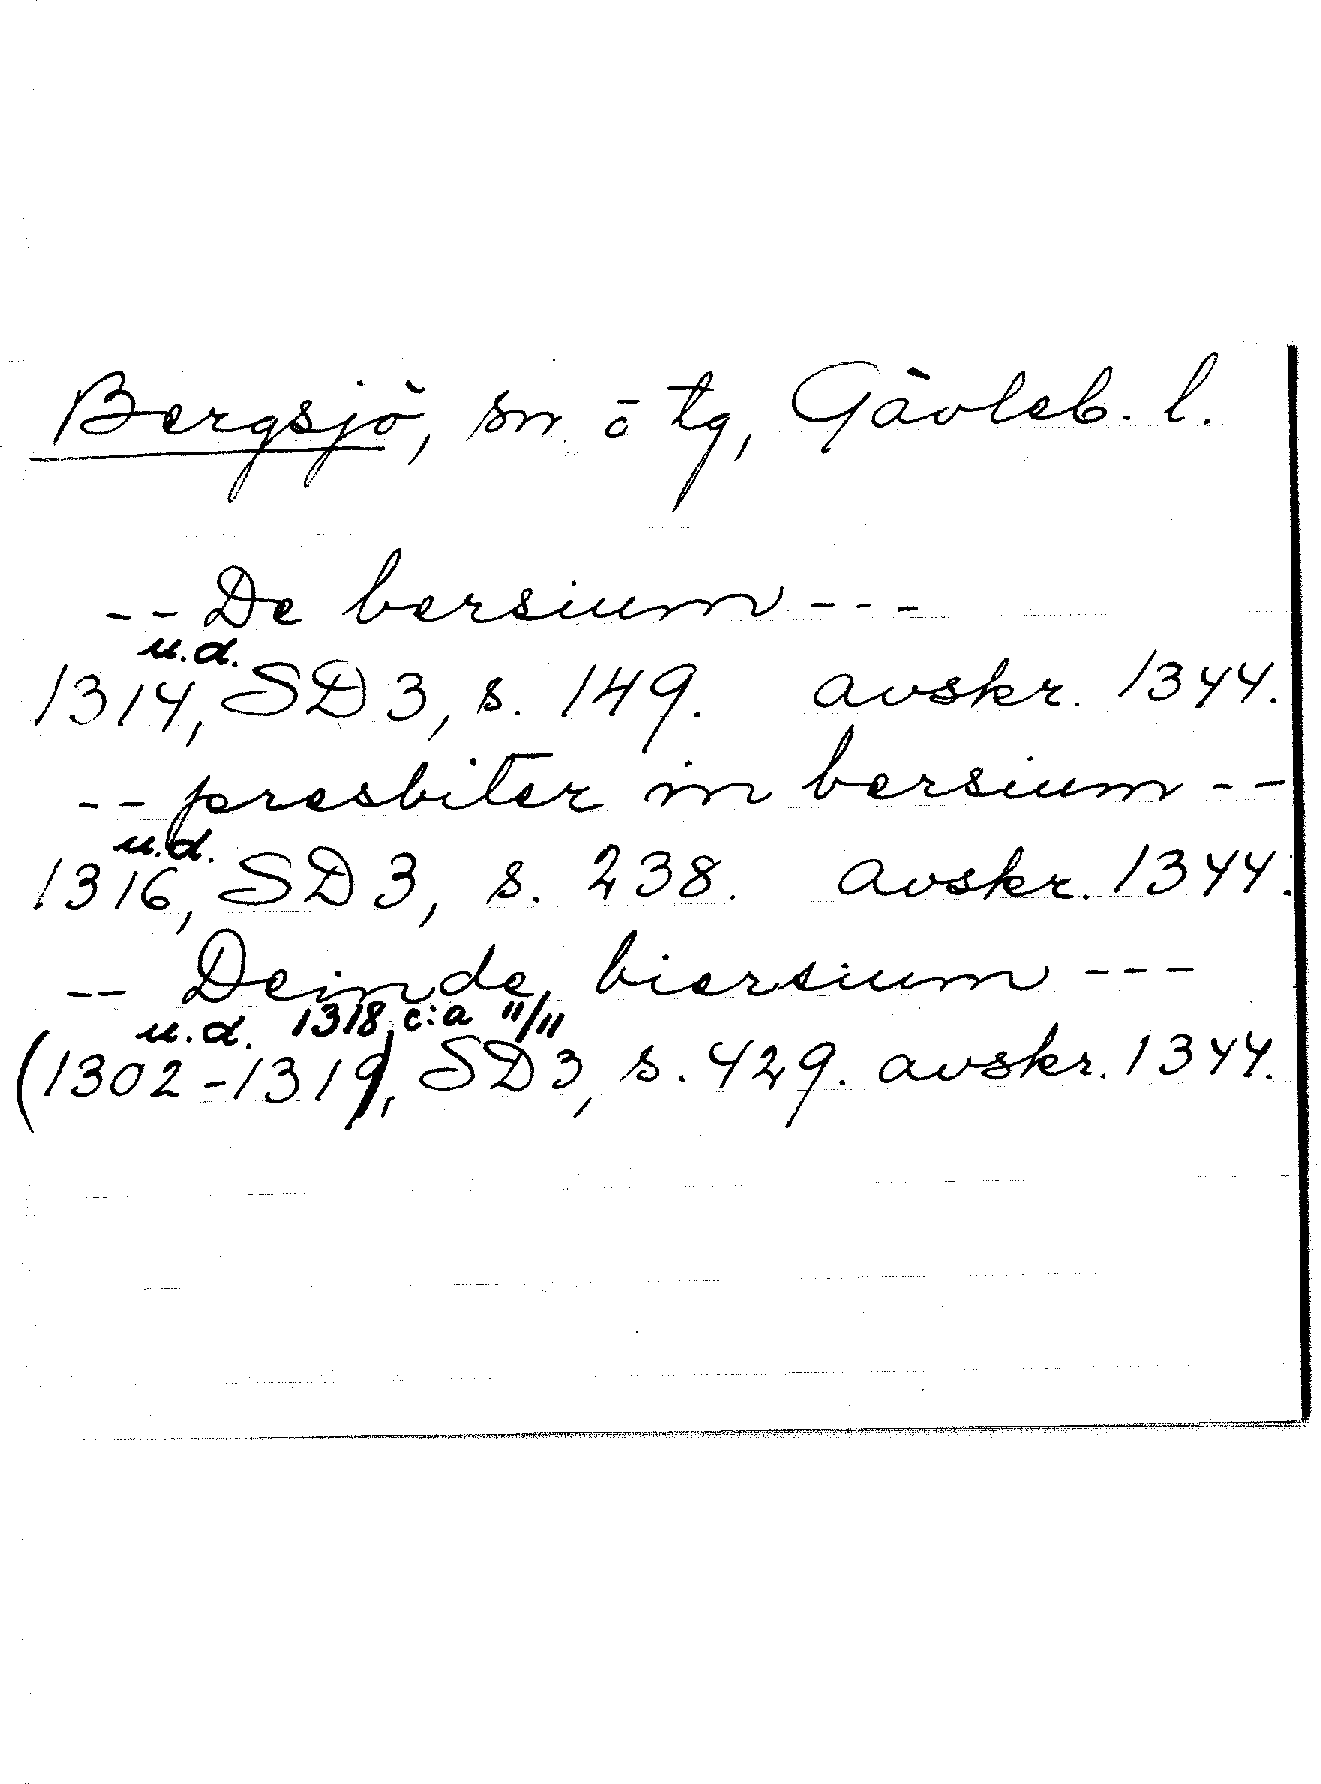 Bergsjö, sn o tg, Gävleb. l.
-- De bersium ---
u.d.
1314, SD 3, s. 149. avskr. 1344.
-- presbiter in bersium --
u.d.
1316, SD 3, s. 238. avskr. 1344.
-- Deinde biersium ---
u.d. 1318 c:a 11/11
(1302-1319), SD 3, s. 429. avskr. 1344.